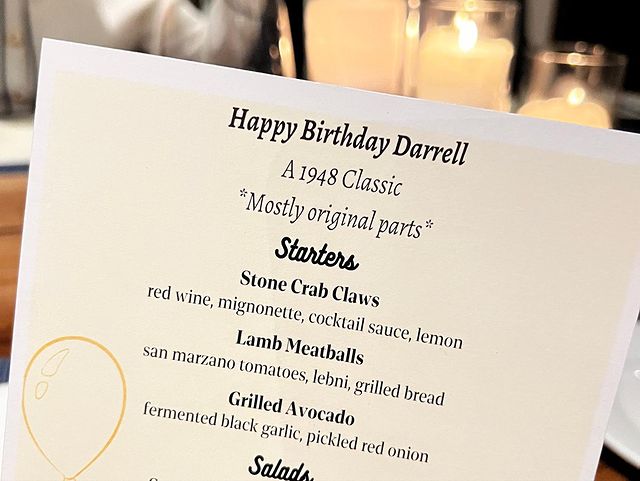 Happy Birthday Darrell
A 1948 Classic
*Mostly original parts*
Starters
Stone Crab Claws
red wine, mignonette, cocktail sauce, lemon
Lamb Meatballs
san marzano tomatoes, lebni, grilled bread
Grilled Avocado
fermented black garlic, pickled red onion
Salads